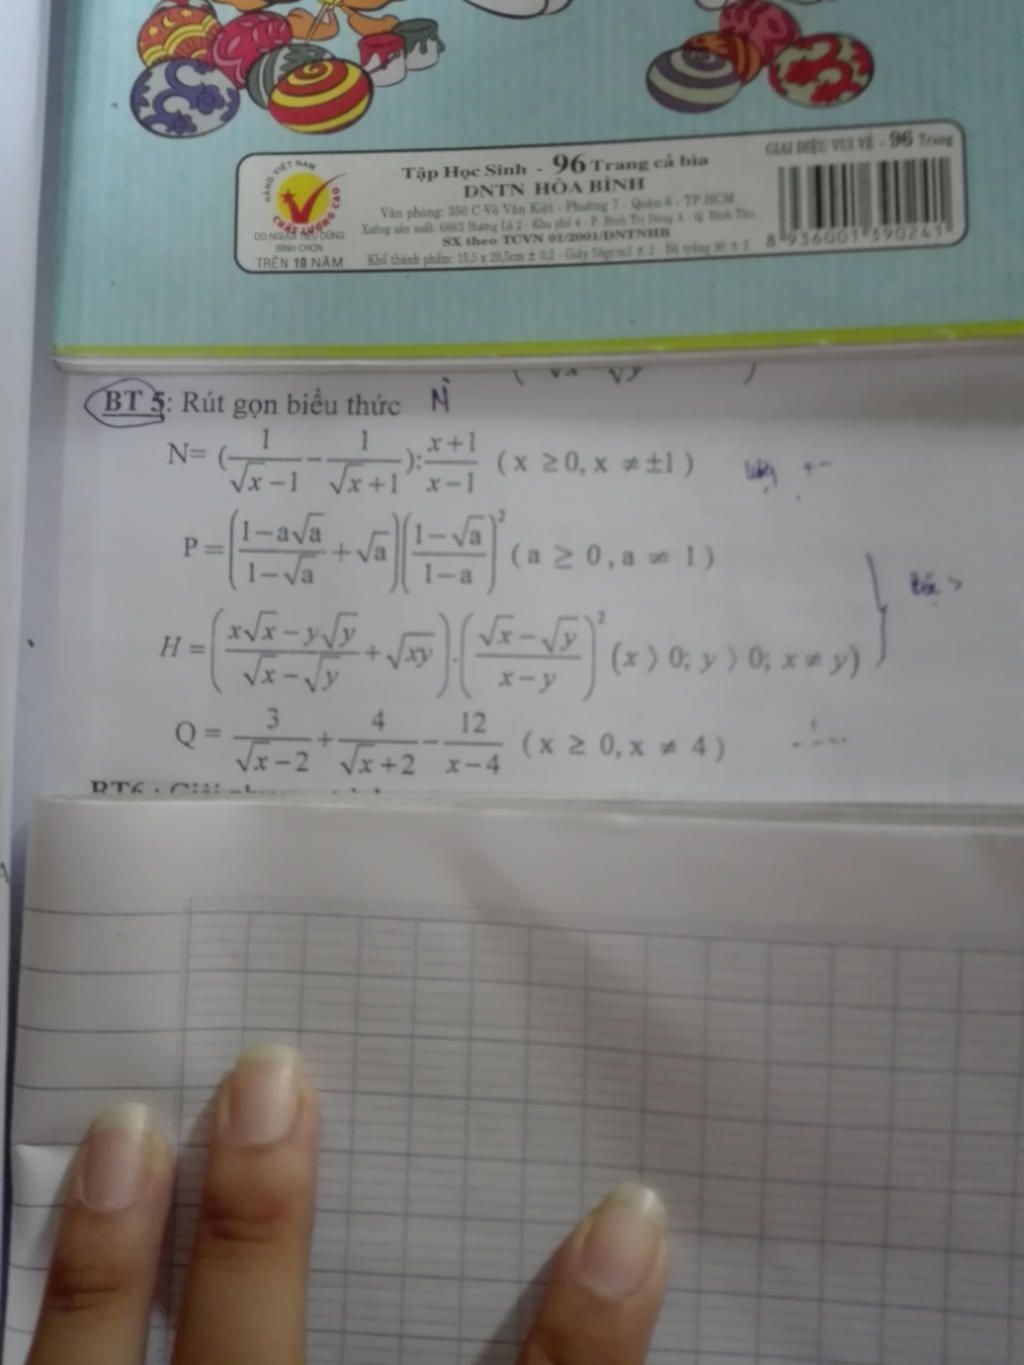 HÀNG VIỆT NAM
CHẤT LƯỢNG CAO
DO NGƯỜI TIÊU DÙNG
BÌNH CHỌN
TRÊN 10 NĂM
GIAI ĐIỆU VUI VẺ - 96 Trang
Tập Học Sinh - 96 Trang cả bìa
DNTN HÒA BÌNH
Văn phòng: 350 C-Võ Văn Kiệt - Phường 7 - Quận 6 - TP.HCM
Xưởng sản xuất: 688/3 Hương Lộ 2 - Khu phố 4 - P. Bình Trị Đông A - Q. Bình Tân
SX theo TCVN 01/2001/DNTNHB
Khổ thành phẩm: 15,5 x 20,5cm ± 0,2 - Giấy 58gr/m2 ± 2 - Độ trắng 90 ± 2
8 936001 390241
BT 5: Rút gọn biểu thức N
N= (1/(√x −1) − 1/(√x +1)):(x+1)/(x−1) (x ≥0, x ≠ ±1)
P = ((1−a√a)/(1−√a) + √a)((1−√a)/(1−a))² (a ≥ 0, a ≠ 1)
H = ((x√x − y√y)/(√x − √y) + √xy).((√x − √y)/(x−y))² (x 〉 0; y 〉 0; x ≠ y)
Q = 3/(√x −2) + 4/(√x +2) − 12/(x−4) (x ≥ 0, x ≠ 4)